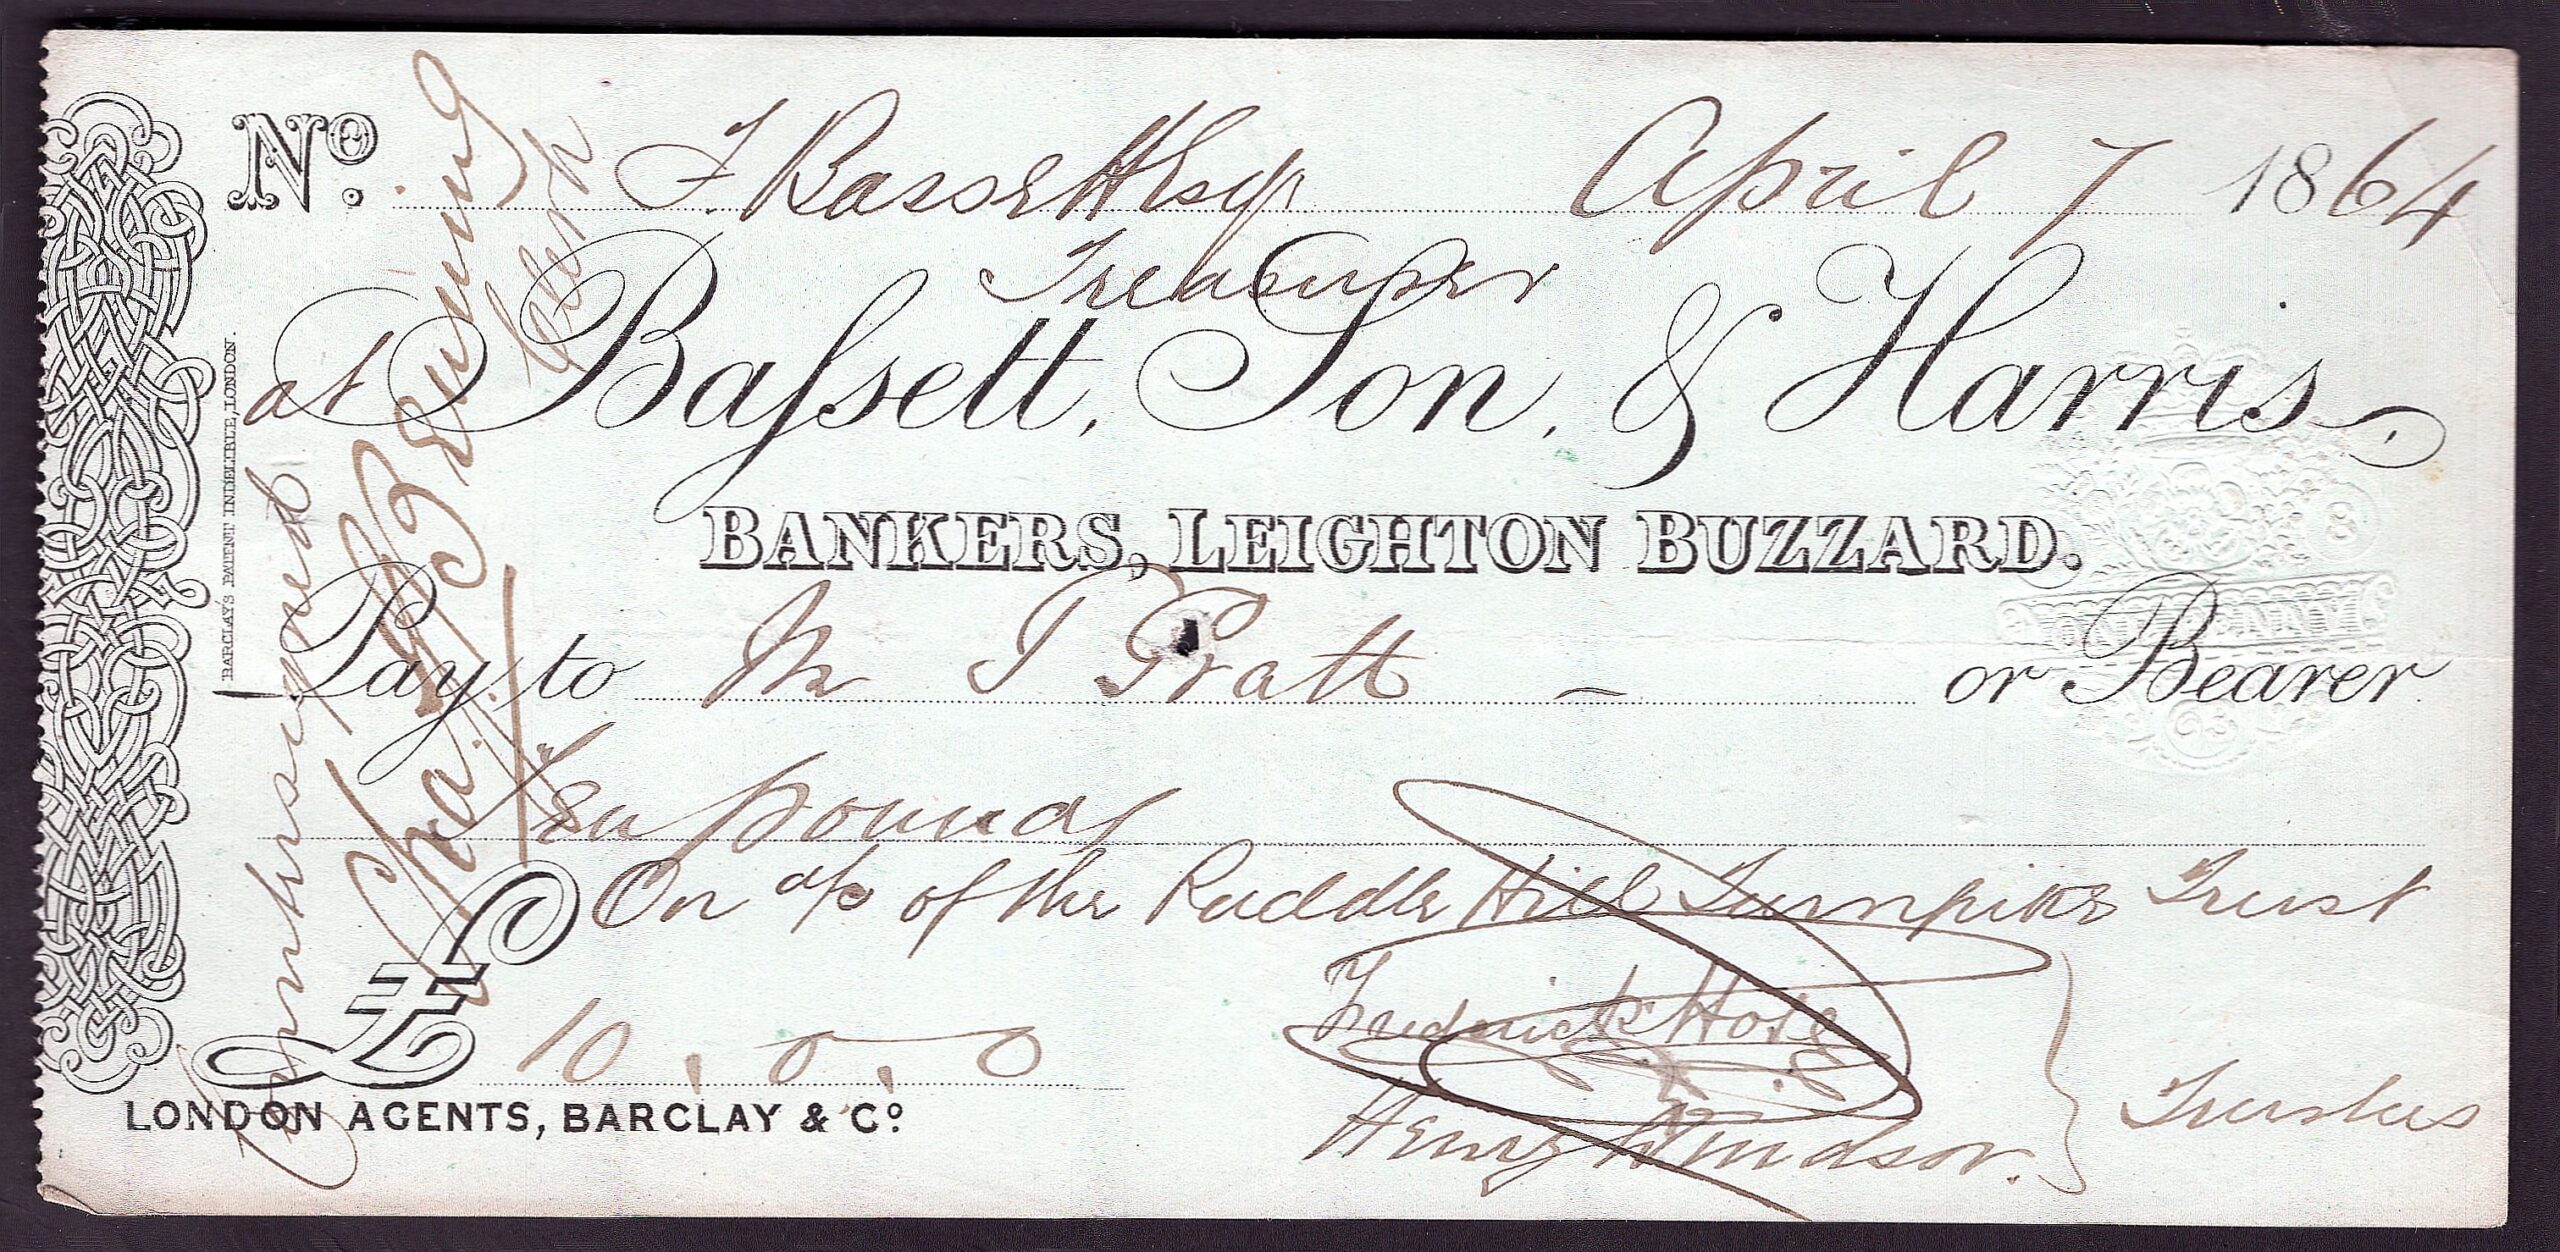 No. F. Bassett Esqr April 7 1864
Treasurer
at Bafsett, Son, & Harris.
BANKERS, LEIGHTON BUZZARD.
Pay to Mr T Pratt — or Bearer
Ten pounds
On a/c of the Puddle Hill Turnpike Trust
£ 10 . 0 . 0
Frederick Hose
Henry Windsor.
Trustees
LONDON AGENTS, BARCLAY & Co.
BARCLAY'S PATENT INDELIBLE, LONDON.
Countersigned
Clerk
ONE PENNY